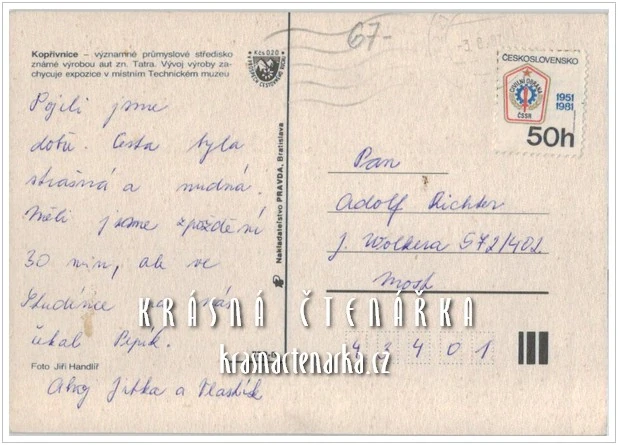 Kopřivnice – významné průmyslové středisko
známé výrobou aut zn. Tatra. Vývoj výroby za-
chycuje expozice v místním Technickém muzeu
Kčs 0,20
67-
ČESKOSLOVENSKO
CIVILNÍ OBRANA
ČSSR
1951
1981
50h
Nakladatelství PRAVDA, Bratislava
Pojeli jsme
dobře. Cesta byla
strašná a nudná.
Měli jsme zpoždění
30 min, ale ve
Studénce na nás
čekal Pepík.
Foto Jiří Handlíř
Ahoj Jitka a Vlastík
Pan
Adolf Richter
J. Wolkera 572/402
Most
43401
KRÁSNÁ ČTENÁŘKA
krasnactenarka.cz